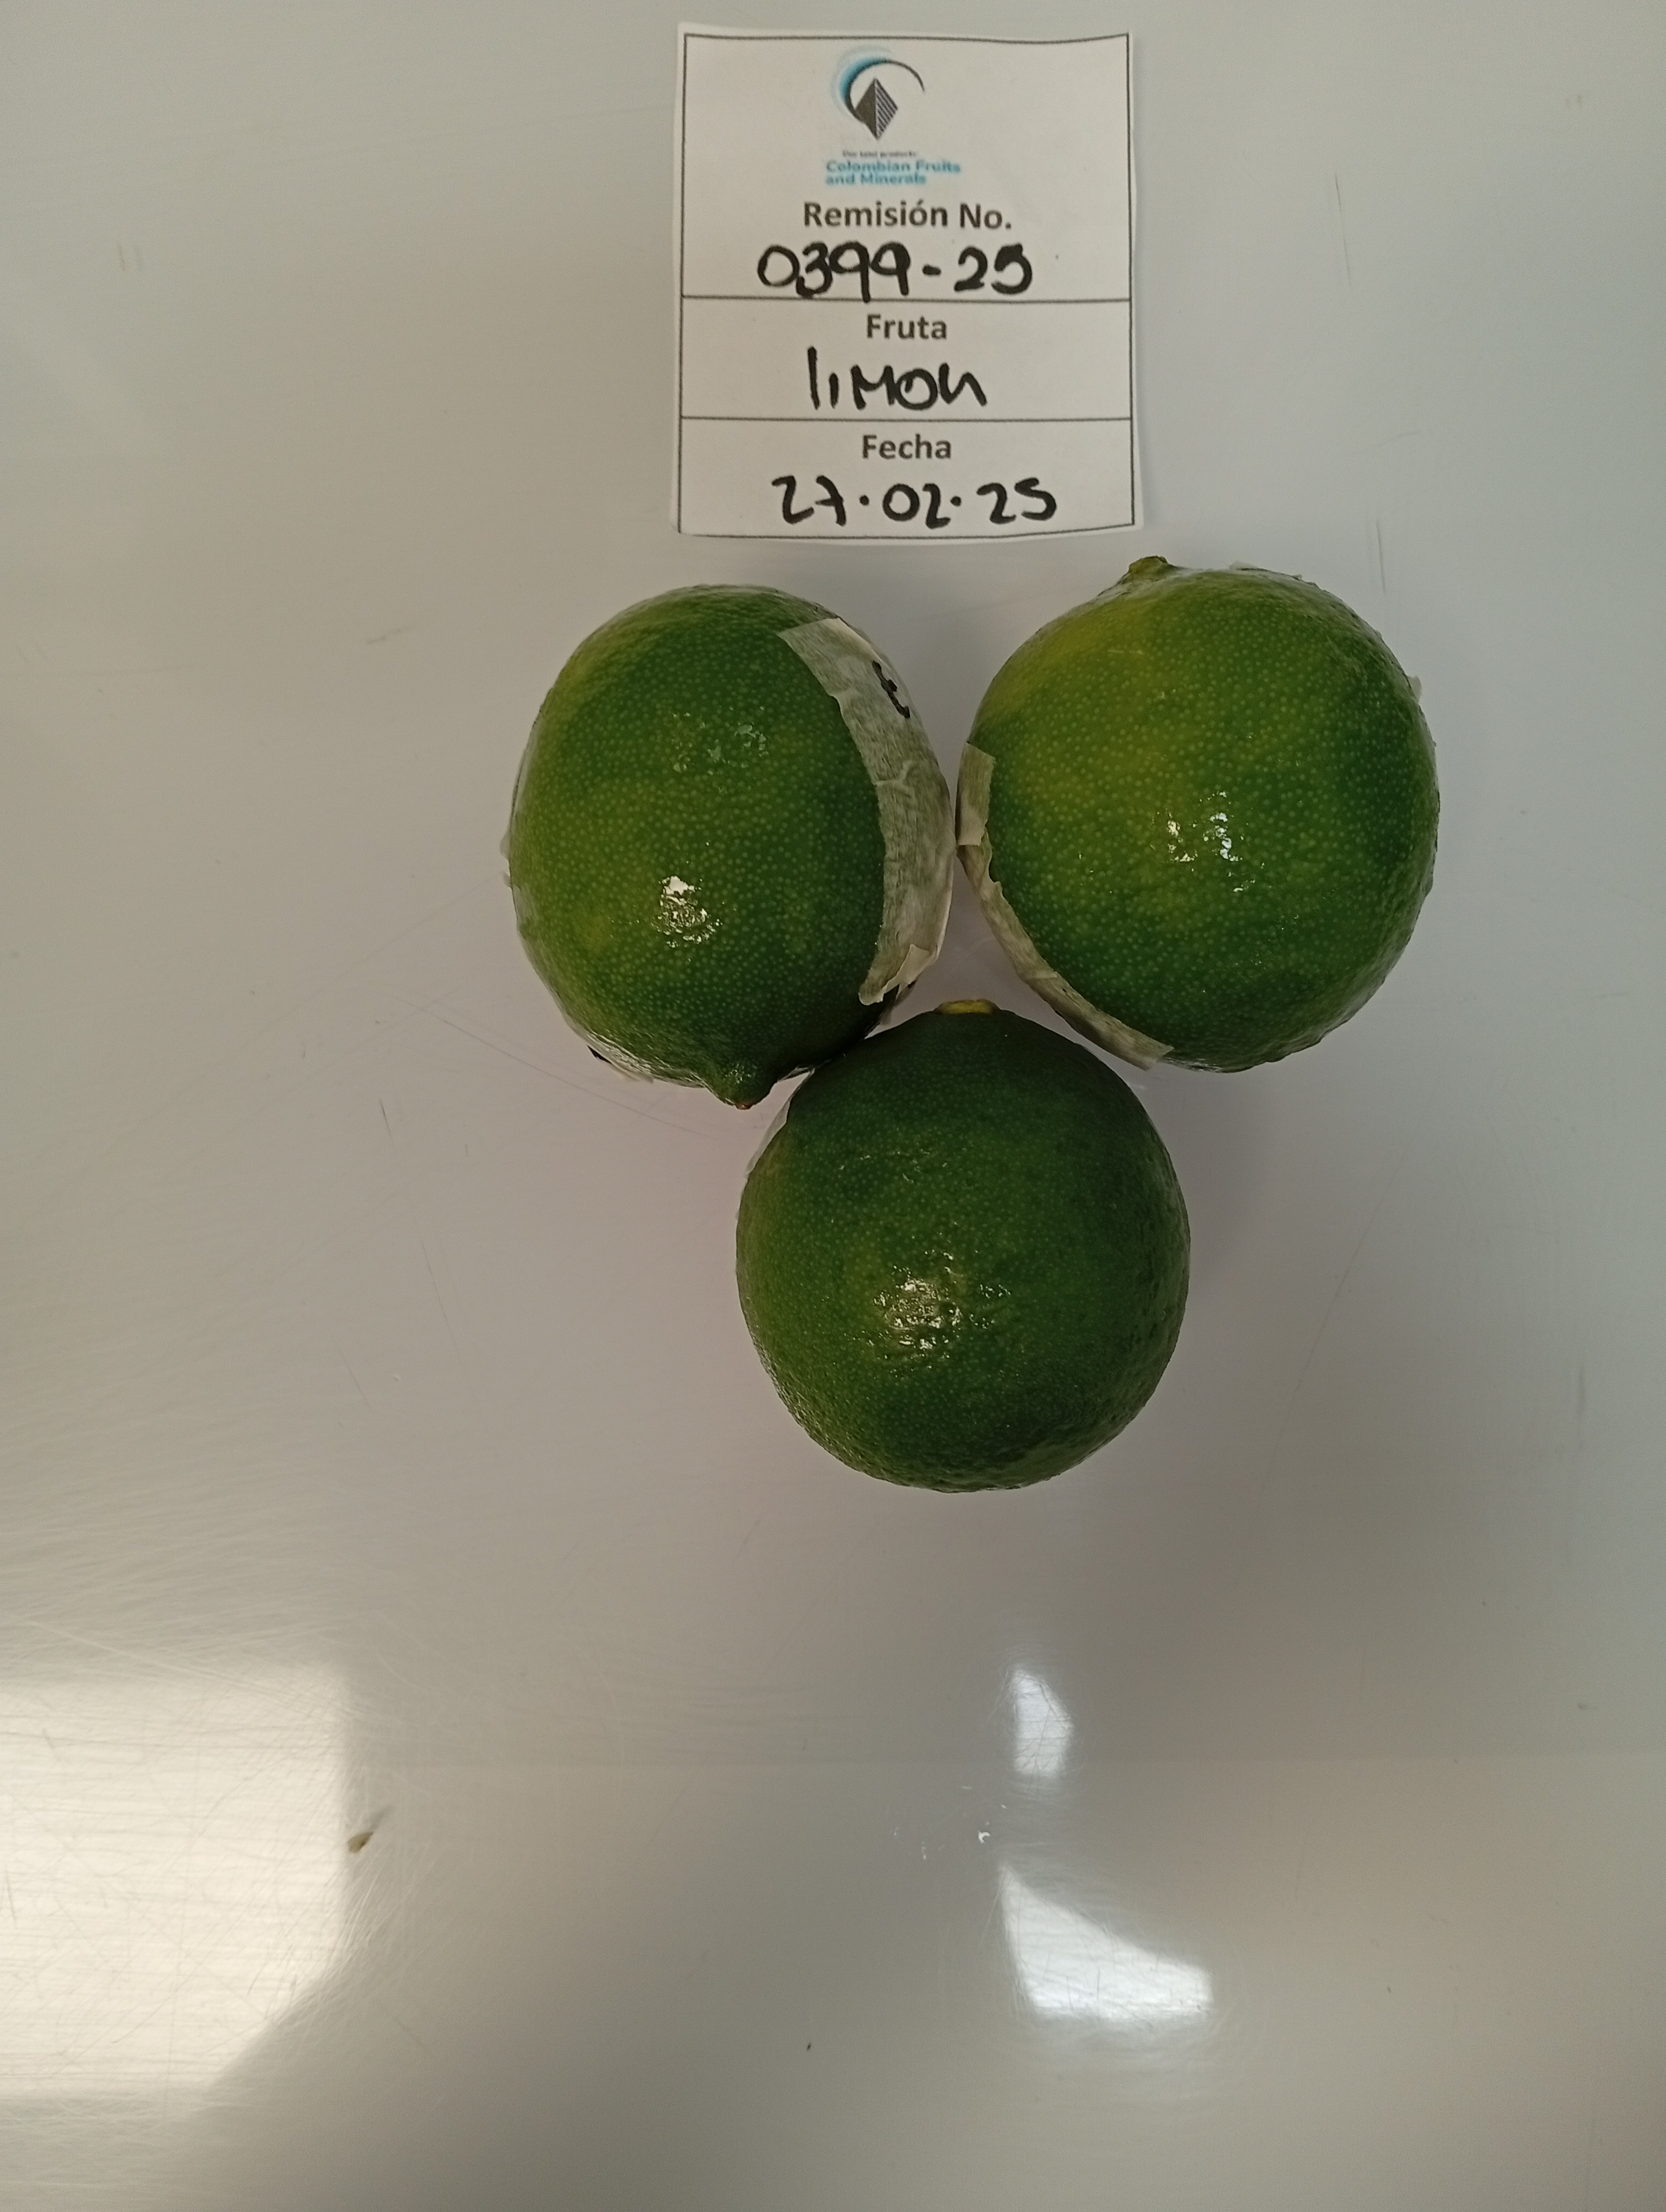 Colombian Fruits
and Minerals
Remisión No.
0399-25
Fruta
limon
Fecha
27.02.25